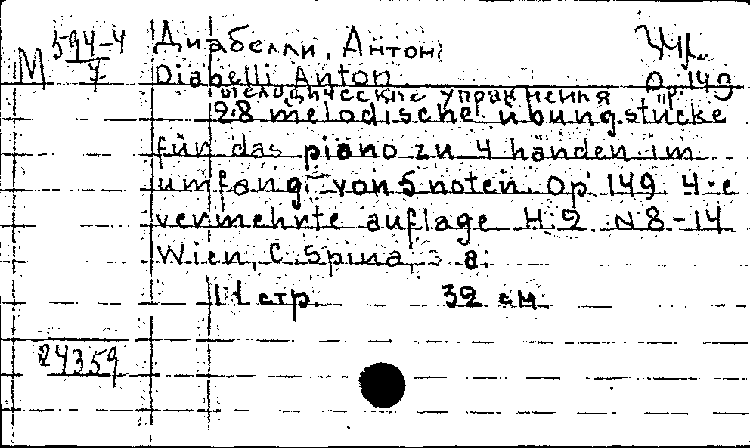 М 594-4/7 Диабелли, Антон
Diabelli Anton Op. 149
Мелодические упражнения
28 melodische übungsstücke
für das piano zu 4 händen im
umfang von 5 noten. Op 149 4-e
vermehrte auflage H. 2 N 8-14
Wien, C. Spina,
11 стр. 32 см.
24359